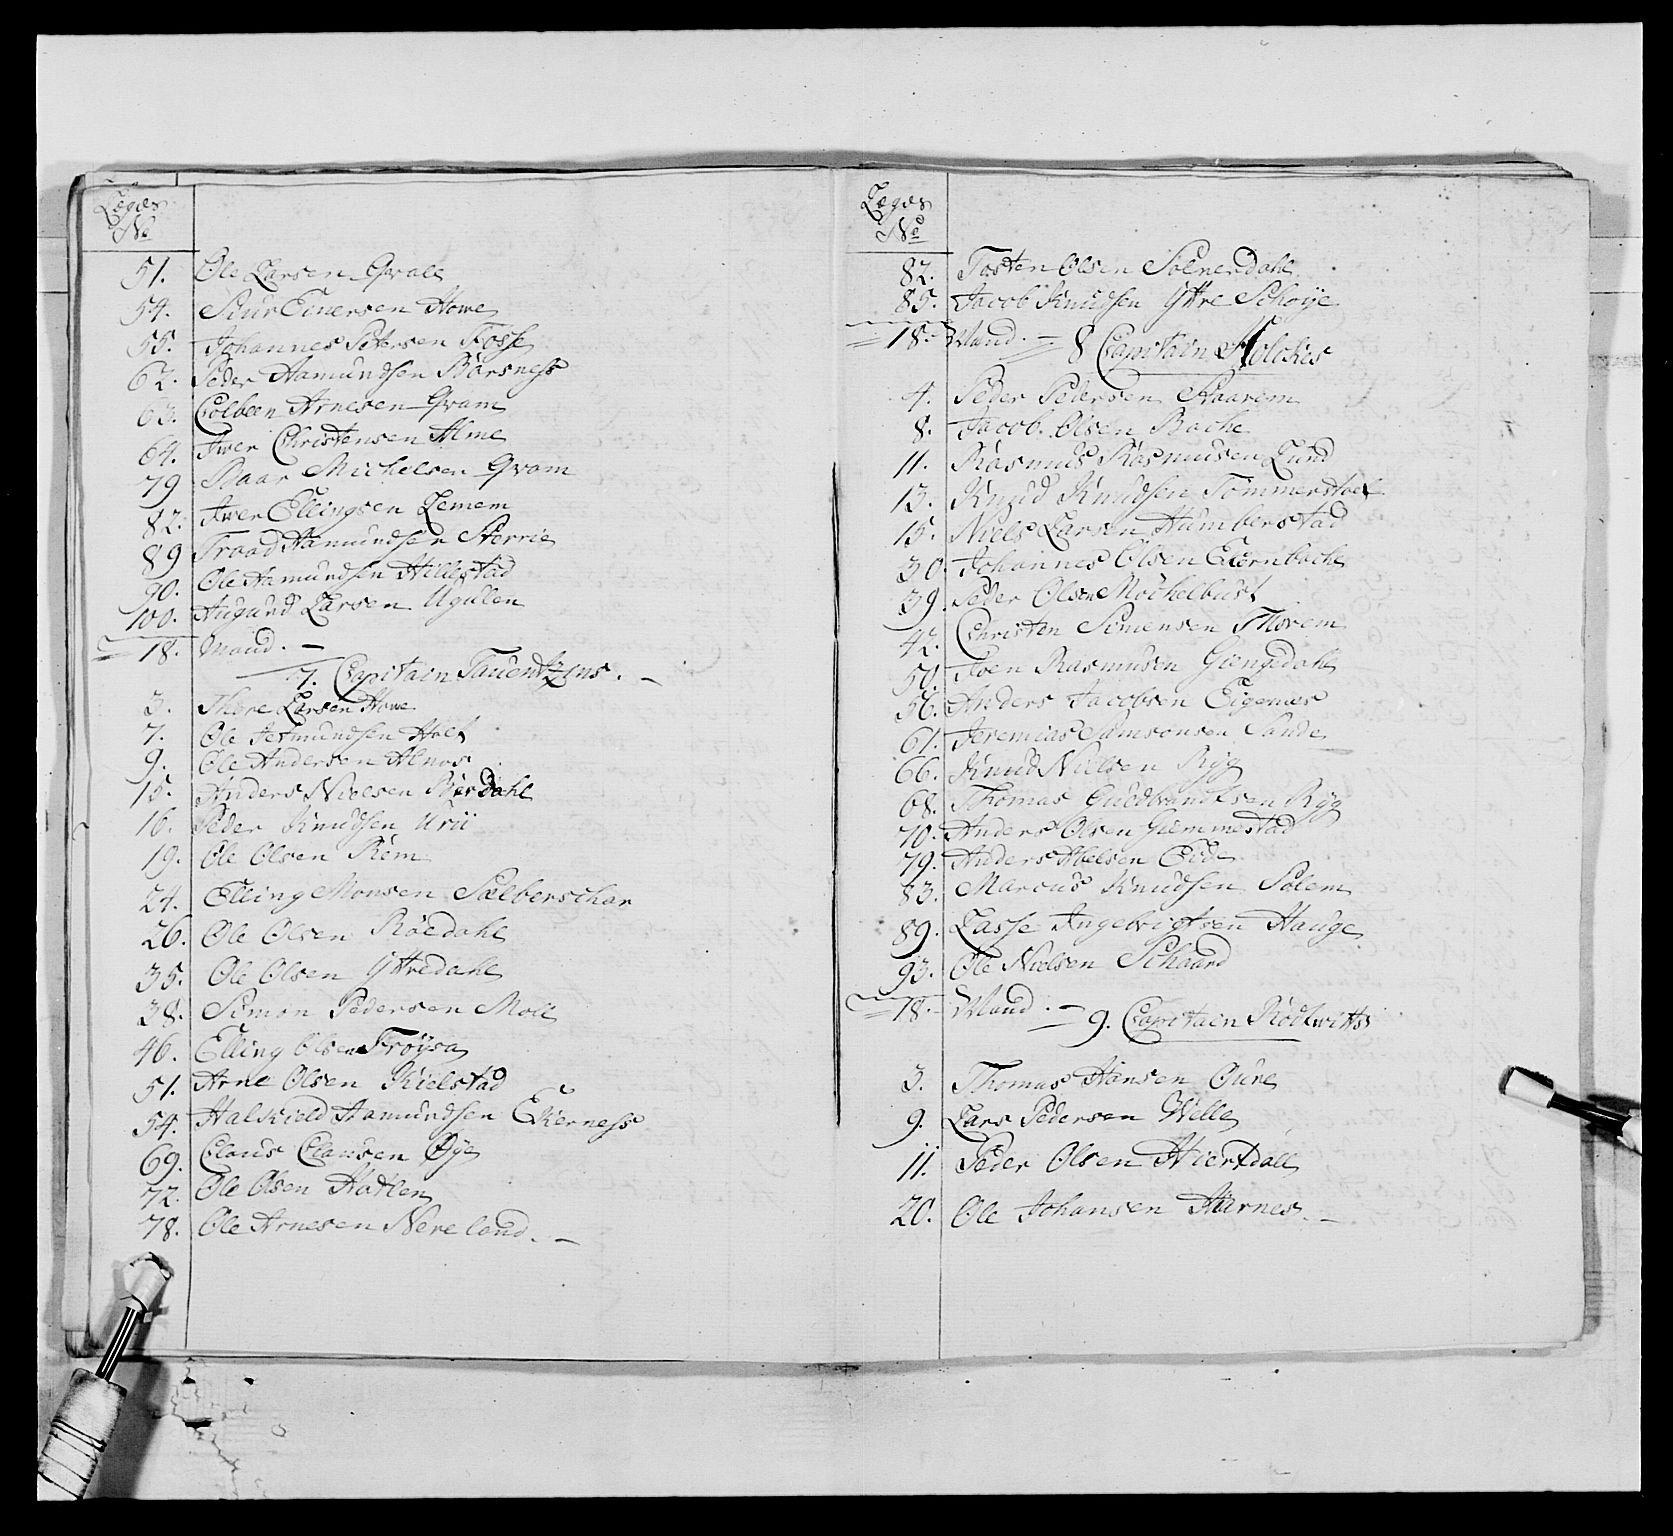 Lægds
No
51. Ole Larsen Qvale
54. Siur Einersen Howe
55. Johannes Petersen Fosse
62. Peder Aamundsen Börsness
63. Colbeen Arnesen Qvam
64. Iver Christensen Alme
79 Baar Michelsen Qvam
82. Iver Ellingsen Lemem
89 Traad Aamundsen Sterrie
90. Ole Aamundsen Hillestad
100. Augund Larsen Ugulen
18. Mand. –
7. Capitain Tauentzins. –
3. Thore Larsen Howe
7. Ole Jetmundsen Holt
9. Ole Andersen Alnos
15. Anders Nielsen Berdahl
16. Peder Knudsen Urii
19. Ole Olsen Rem
24. Elling Monsen Sælberschar
26. Ole Olsen Röedahl
35. Ole Olsen Yttredahl
38. Simon Pedersen Moll
46. Elling Olsen Tröysa
51. Arne Olsen Kielstad
54. Halkield Aamundsen Ekerness
69. Claus Clausen Øye
72. Ole Olsen Hatlen
78. Ole Arnesen Nereland. –
Lægds
No
82. Tosten Olsen Solnerdahl
85. Jacob Knudsen Yttre Schoye
18. Mand. –
8 Capitain Holckes
4. Peder Pedersen Staarem
8. Jacob Olsen Bache
11. Rasmus Rasmusen Lund
13. Knud Knudsen Tömmerstoel
15. Niels Larsen Humberstad
30. Johannes Olsen Eternbache
39. Peder Olsen Mochelbust
42. Christen Simensen Thorem
50. Joen Rasmusen Giengedahl
56. Anders Jacobsen Eigenæs
61. Jeremias Samsonsen Sande
66. Knud Nielsen Ryg
68. Thomas Gudbrandtsen Ryg
70. Anders Olsen Giemmestad
79. Anders Abelsen Eide
83. Marcus Knudsen Solem
89. Lasse Ingebrigtsen Hauge
93. Ole Nielsen Schaard
18. Mand. –
9. Capitain Rödtwitts
3. Thomas Hansen Oure
9. Lars Pedersen Wille
11. Peder Olsen Hiertdall
20. Ole Johansen Aarnes. –